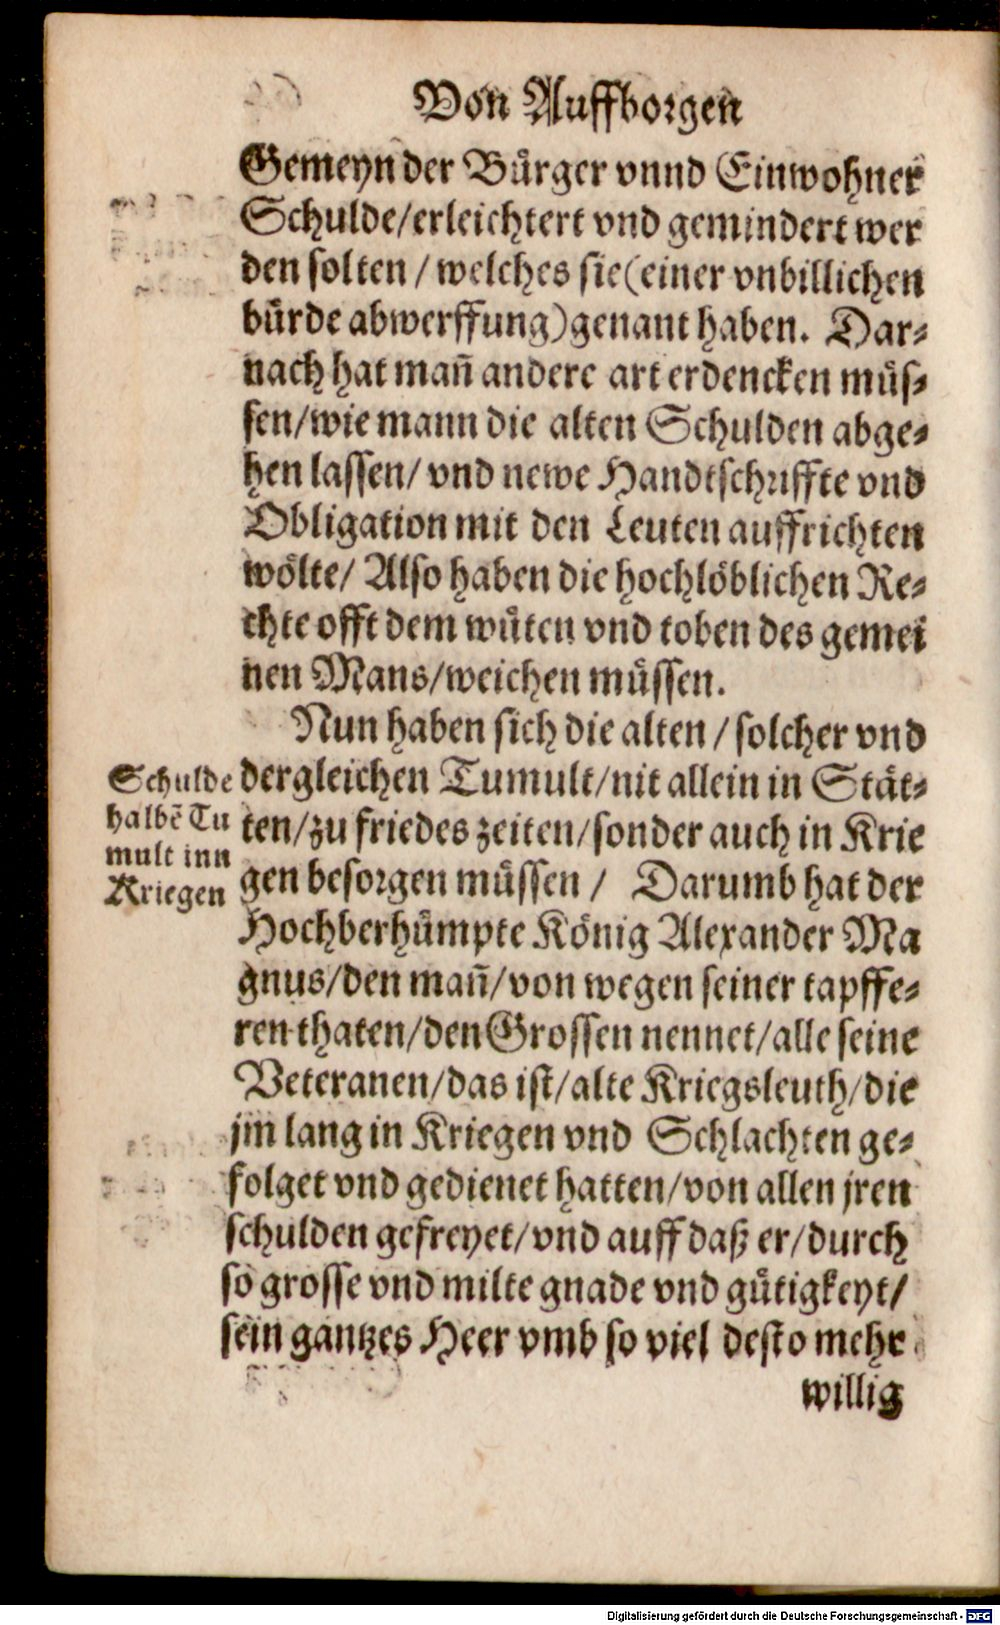 Von Auffborgen
Gemeyn der Bürger vnnd Einwohner
Schulde/erleichtert vnd gemindert wer
den solten / welches sie (einer vnbillichen
bürde abwerffung) genant haben. Dar-
nach hat mañ andere art erdencken müs-
sen/wie mann die alten Schulden abge-
hen lassen/ vnd newe Handtschriffte vnd
Obligation mit den Leuten auffrichten
wölte/ Also haben die hochlöblichen Re-
chte offt dem wüten vnd toben des gemei
nen Mans/weichen müssen.
Nun haben sich die alten / solcher vnd
dergleichen Tumult/nit allein in Stät-
ten/zu friedes zeiten/sonder auch in Krie
gen besorgen müssen / Darumb hat der
Hochberhümpte König Alexander Ma
gnus/den mañ/von wegen seiner tapffe-
ren thaten/den Grossen nennet/alle seine
Veteranen/das ist/alte Kriegsleuth/die
jm lang in Kriegen vnd Schlachten ge-
folget vnd gedienet hatten/von allen jren
schulden gefreyet/vnd auff daß er/durch
so grosse vnd milte gnade vnd gütigkeyt/
sein gantzes Heer vmb so viel desto mehr
willig
Schulde
halbẽ Tu
mult inn
Kriegen
Digitalisierung gefördert durch die Deutsche Forschungsgemeinschaft - DFG